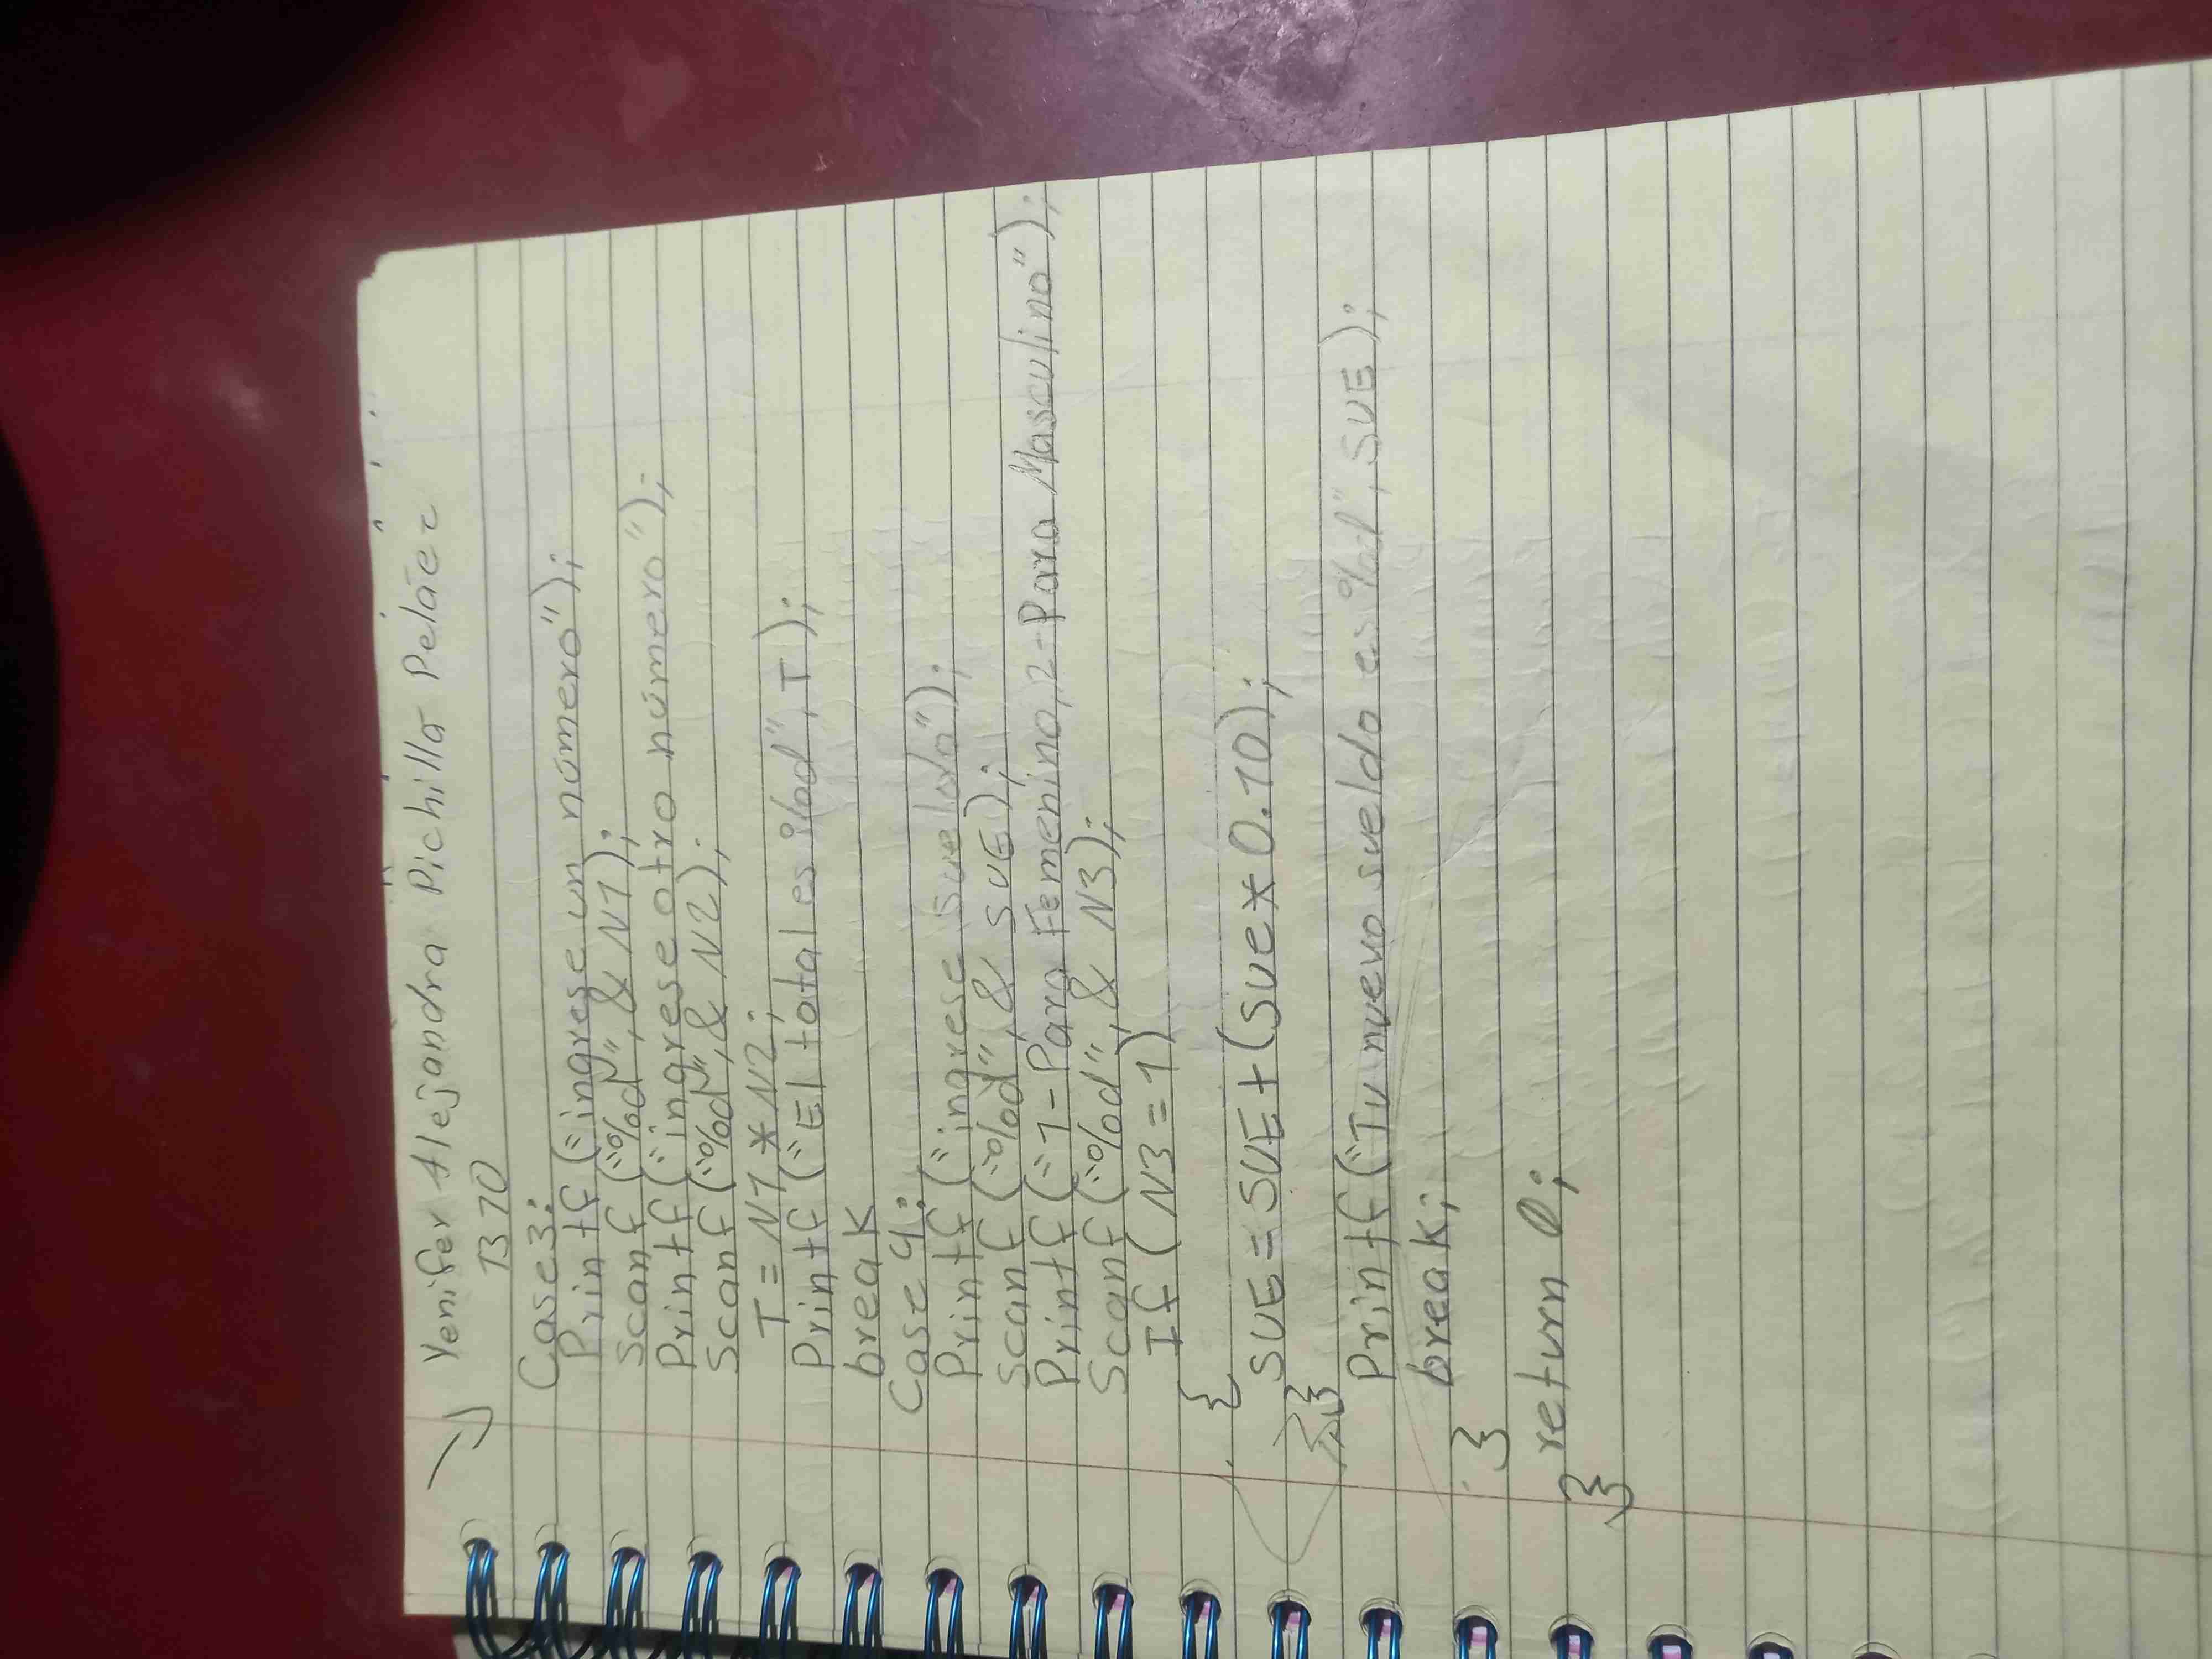 Yenifer Alejandra Pichilla Peláez
B70
Case3:
Printf("ingrese un número");
Scanf("%d",& N1);
Printf("ingrese otro número");
Scanf("%d",& N2);
T=N1*N2;
Printf("El total es %d",T);
break
Case 4:
Printf("ingrese sueldo");
Scanf("%d",& SUE);
Printf("1-Para Femenino,2-Para Masculino");
Scanf("%d",& N3);
If(N3=1)
{
SUE=SUE+(sue*0.10);
}
Printf("Tu nuevo sueldo es %d",SUE);
break;
}
return 0;
}